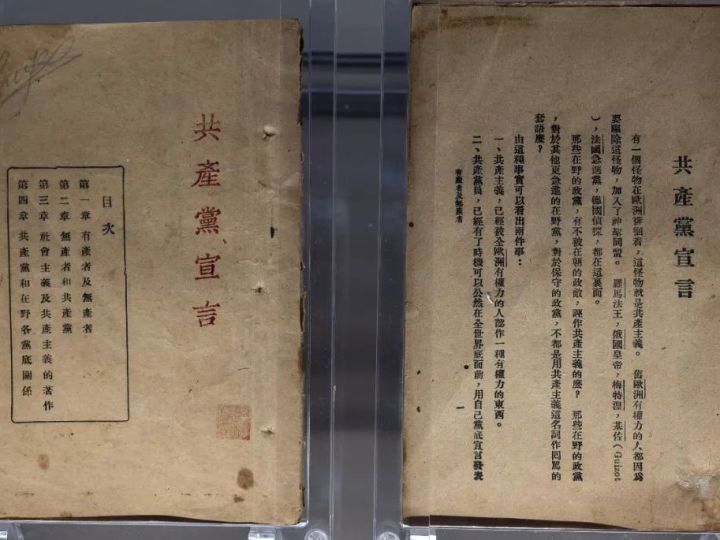 共產黨宣言
目次
第一章 有產者及無產者
第二章 無產者和共產黨
第三章 社會主義及共產主義的著作
第四章 共產黨和在野各黨底關係
共產黨宣言
有一個怪物在歐洲徘徊着，這怪物就是共產主義。舊歐洲有權力的人都因爲
要驅除這怪物，加入了神聖同盟。羅馬法王，俄國皇帝，梅特涅，基佐（Guizot
），法國急進黨，德國偵探，都在這裏面。
那些在野的政黨，有不被在朝的政敵，誣作共產主義的麼？那些在野的政黨
，對於其他更急進的在野黨，對於保守的政黨，不都是用共產主義這名詞作回罵的
套語麼？
由這種事實可以看出兩件事：
一、共產主義，已經被全歐洲有權力的人認作一種有權力的東西。
二、共產黨員，已經有了時機可以公然在全世界底面前，用自己黨底宣言發表
有產者及無產者
一